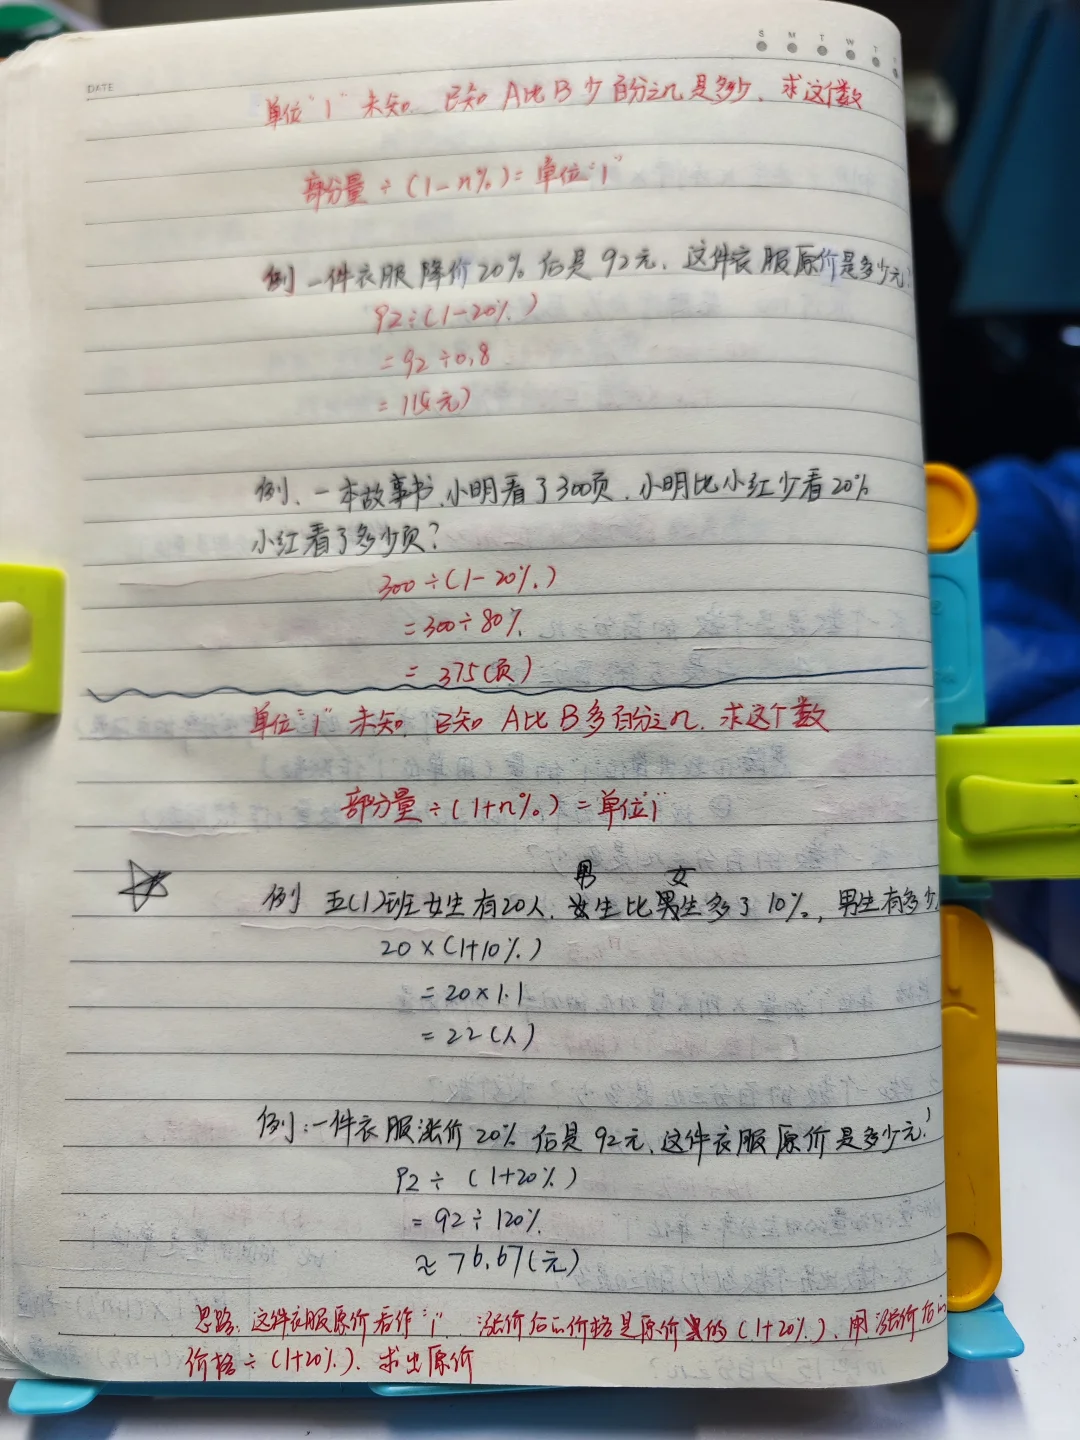 DATE
S M T W T
单位"1"未知、已知A比B少百分之几是多少、求这个数
部分量÷(1-n%)=单位"1"
例 一件衣服降价20%后是92元、这件衣服原价是多少元?
92÷(1-20%)
=92÷0.8
=115(元)
例、一本故事书、小明看了300页、小明比小红少看20%
小红看了多少页?
300÷(1-20%)
=300÷80%
=375(页)
单位"1"未知、已知A比B多百分之几、求这个数
部分量÷(1+n%)=单位"1"
男 女
例 五(1)班女生有20人、女生比男生多了10%,男生有多少
20×(1+10%)
=20×1.1
=22(人)
例:一件衣服涨价20%后是92元、这件衣服原价是多少元?
92÷(1+20%)
=92÷120%
≈76.67(元)
思路、这件衣服原价看作"1" 涨价后的价格是原价的(1+20%)、用涨价后的
价格÷(1+20%)、求出原价